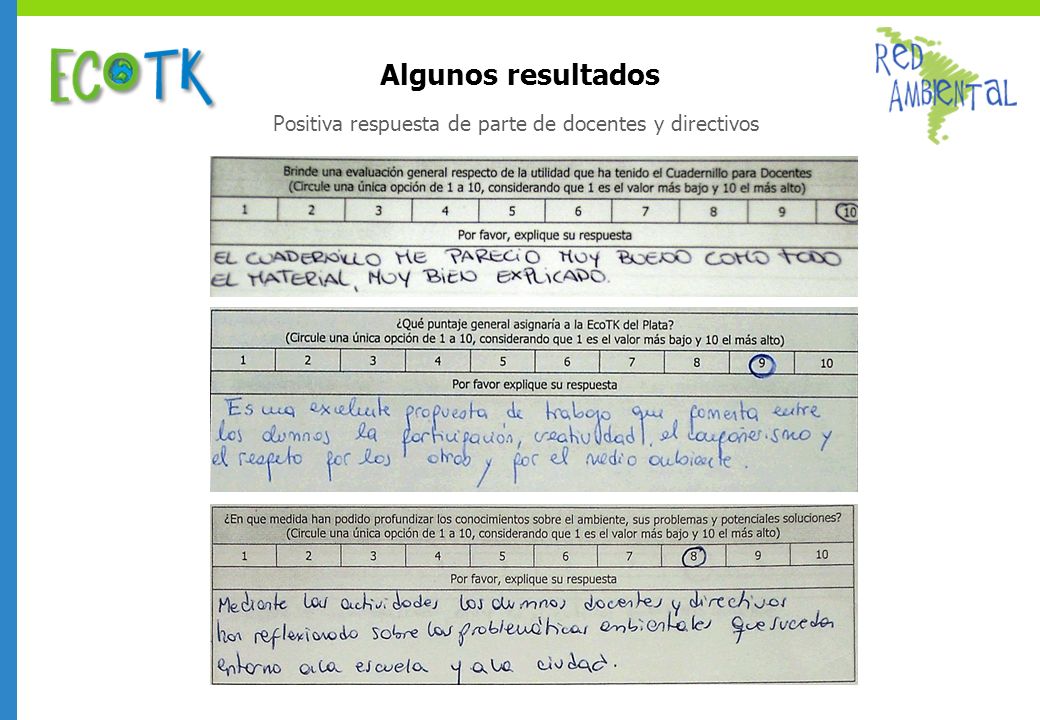 ECOTK
Algunos resultados
RED
AMBIENTAL
Positiva respuesta de parte de docentes y directivos
Brinde una evaluación general respecto de la utilidad que ha tenido el Cuadernillo para Docentes
(Circule una única opción de 1 a 10, considerando que 1 es el valor más bajo y 10 el más alto)
1 2 3 4 5 6 7 8 9 10
Por favor, explique su respuesta
EL CUADERNILLO ME PARECIO MUY BUENO COMO TODO
EL MATERIAL, MUY BIEN EXPLICADO.
¿Qué puntaje general asignaría a la EcoTK del Plata?
(Circule una única opción de 1 a 10, considerando que 1 es el valor más bajo y 10 el más alto)
1 2 3 4 5 6 7 8 9 10
Por favor explique su respuesta
Es una excelente propuesta de trabajo que fomenta entre
los alumnos la participación, creatividad, el compañerismo y
el respeto por los otros y por el medio ambiente.
¿En que medida han podido profundizar los conocimientos sobre el ambiente, sus problemas y potenciales soluciones?
(Circule una única opción de 1 a 10, considerando que 1 es el valor más bajo y 10 el más alto)
1 2 3 4 5 6 7 8 9 10
Por favor, explique su respuesta
Mediante las actividades los alumnos docentes y directivos
han reflexionado sobre las problemáticas ambientales que suceden
entorno a la escuela y a la ciudad.